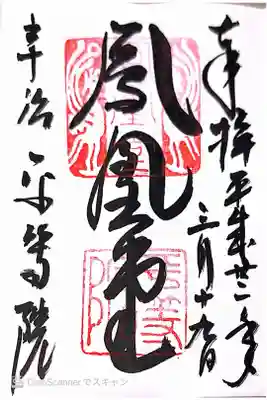 奉拝 平成廿二年
三月十九日
鳳凰堂
宇治 平等院
CamScanner でスキャン